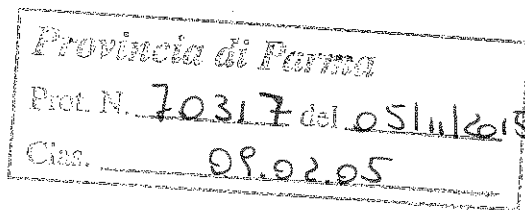 Provincia di Parma
Prot. N. 70317 del 05/11/2015
Clas. 09.02.05